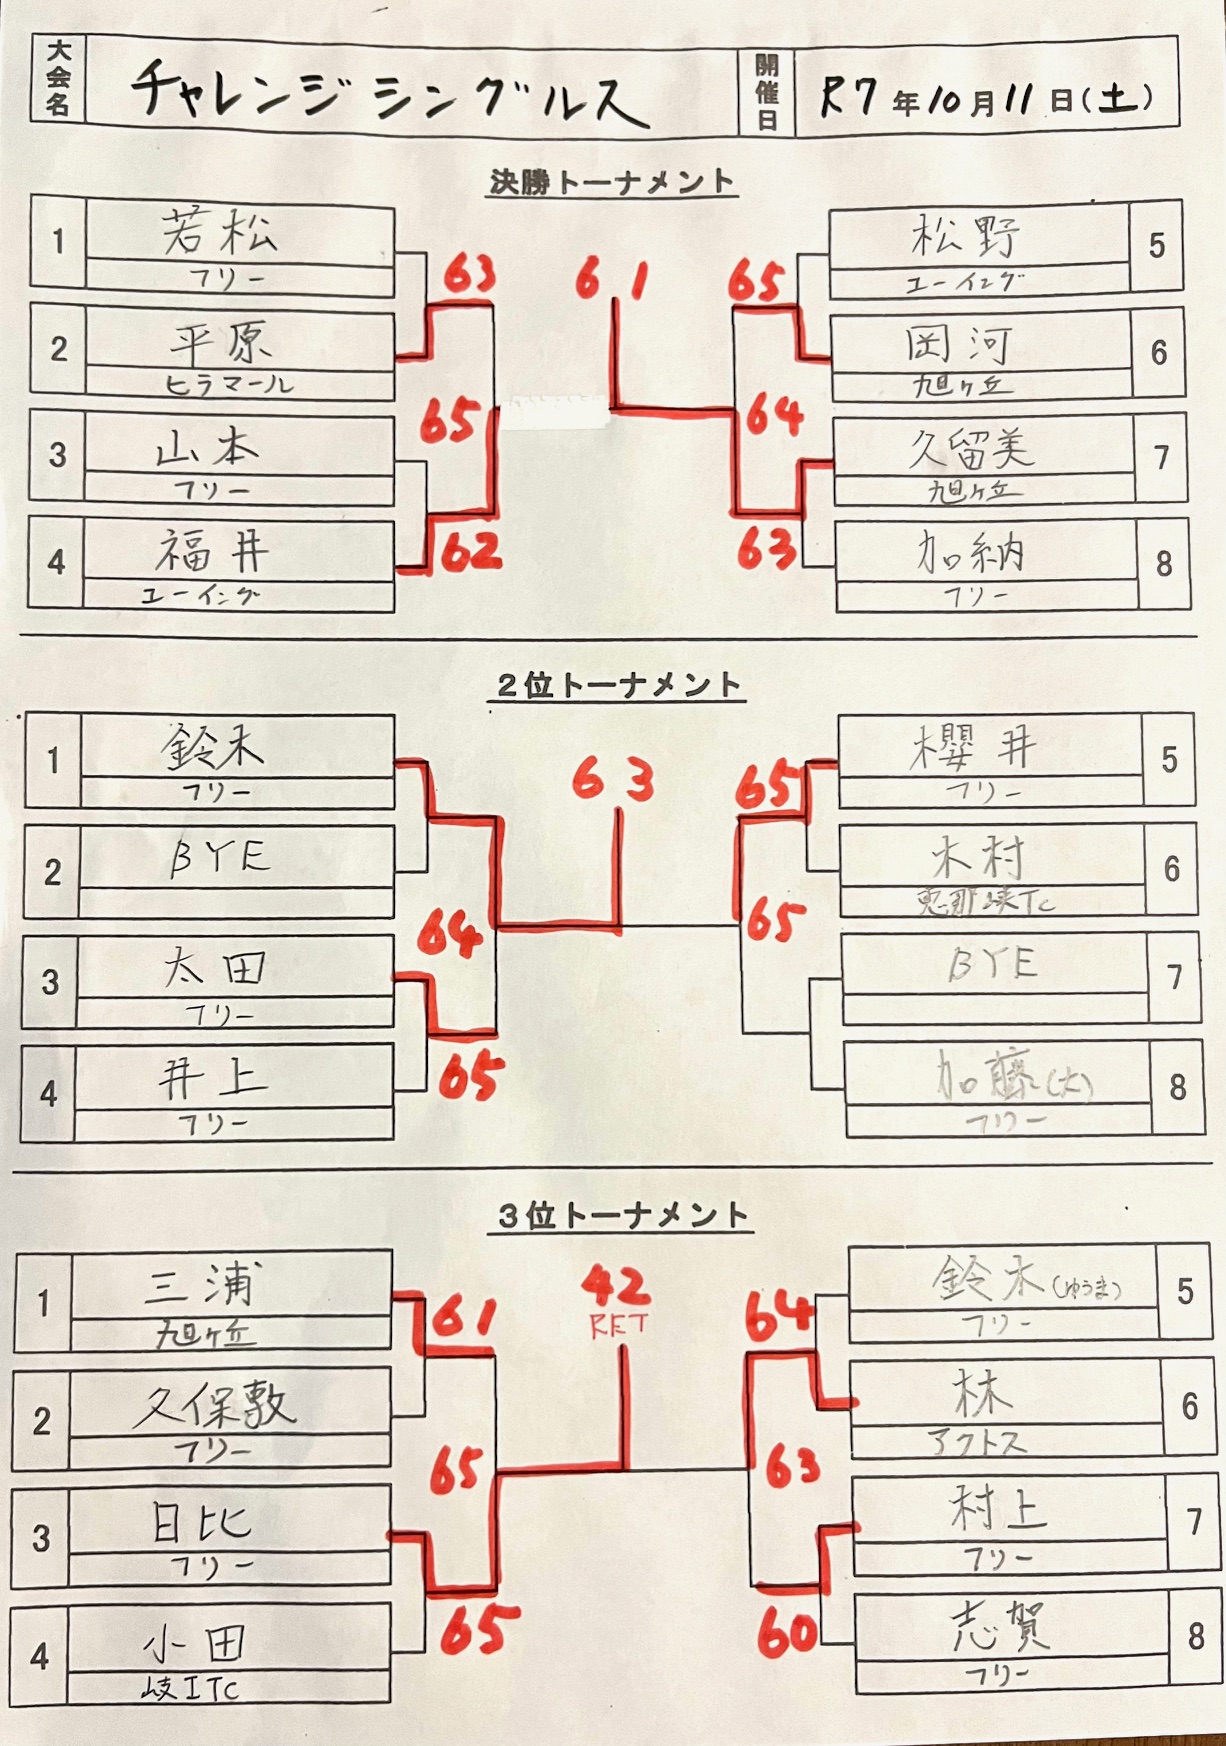 大会名 チャレンジシングルス 開催日 R7年10月11日(土)
決勝トーナメント
1 若松 フリー
2 平原 ヒラマール
3 山本 フリー
4 福井 ユーイング
63
65
62
61
65
64
63
松野 ユーイング 5
岡河 旭ヶ丘 6
久留美 旭ヶ丘 7
加納 フリー 8
2位トーナメント
1 鈴木 フリー
2 BYE
3 太田 フリー
4 井上 フリー
64
65
63
65
65
櫻井 フリー 5
木村 恵那峡Tc 6
BYE 7
加藤(大) フリー 8
3位トーナメント
1 三浦 旭ヶ丘
2 久保敷 フリー
3 日比 フリー
4 小田 岐ITC
61
65
65
42
RET
64
63
60
鈴木(ゆうま) フリー 5
林 アクトス 6
村上 フリー 7
志賀 フリー 8